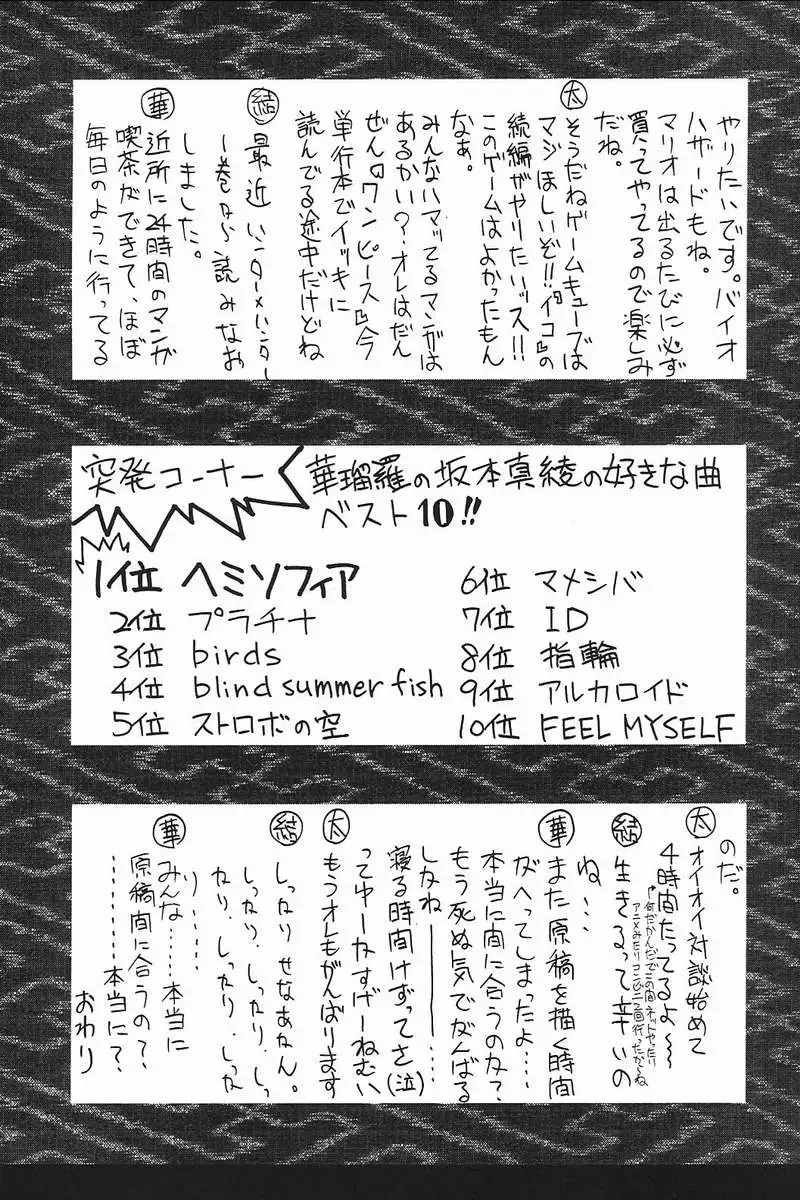 やりたいです。バイオ
ハザードもね。
マリオは出るたびに必ず
買ってやってるので楽しみ
だね。
太 そうだねゲームキューブでは
マジほしいぞ!!『イコ』の
続編がやりたいッス!!
このゲームはよかったもん
なぁ。
みんなハマッてるマンガは
あるかい?オレはだん
ぜん『ワンピース』今
単行本でイッキに
読んでる途中だけどね
結 最近ハンター×ハンター
1巻から読みなお
しました。
華 近所に24時間のマンガ
喫茶ができて、ほぼ
毎日のように行ってる
突発コーナー
華瑠羅の坂本真綾の好きな曲
ベスト10!!
1位 ヘミソフィア
2位 プラチナ
3位 birds
4位 blind summer fish
5位 ストロボの空
6位 マメシバ
7位 ID
8位 指輪
9位 アルカロイド
10位 FEEL MYSELF
のだ。
太 オイオイ対談始めて
4時間たってるよ〜〜
何だかんだでこの間ネットやったり
アニメみたりコンビニ2回行ったからね
結 生きるって辛いの
ね…
華 また原稿を描く時間
がへってしまったよ…
本当に間に合うのか?
もう死ぬ気でがんばる
しかねー――…
寝る時間けずってさ(泣)
太 ってゆーかすげーねむい
もうオレもがんばります
結 しったりせなあかん。
しったり.しったり.しっ
たり.しったり.しった
り……
華 みんな……本当に
原稿間に合うの?
………本当に?
おわり